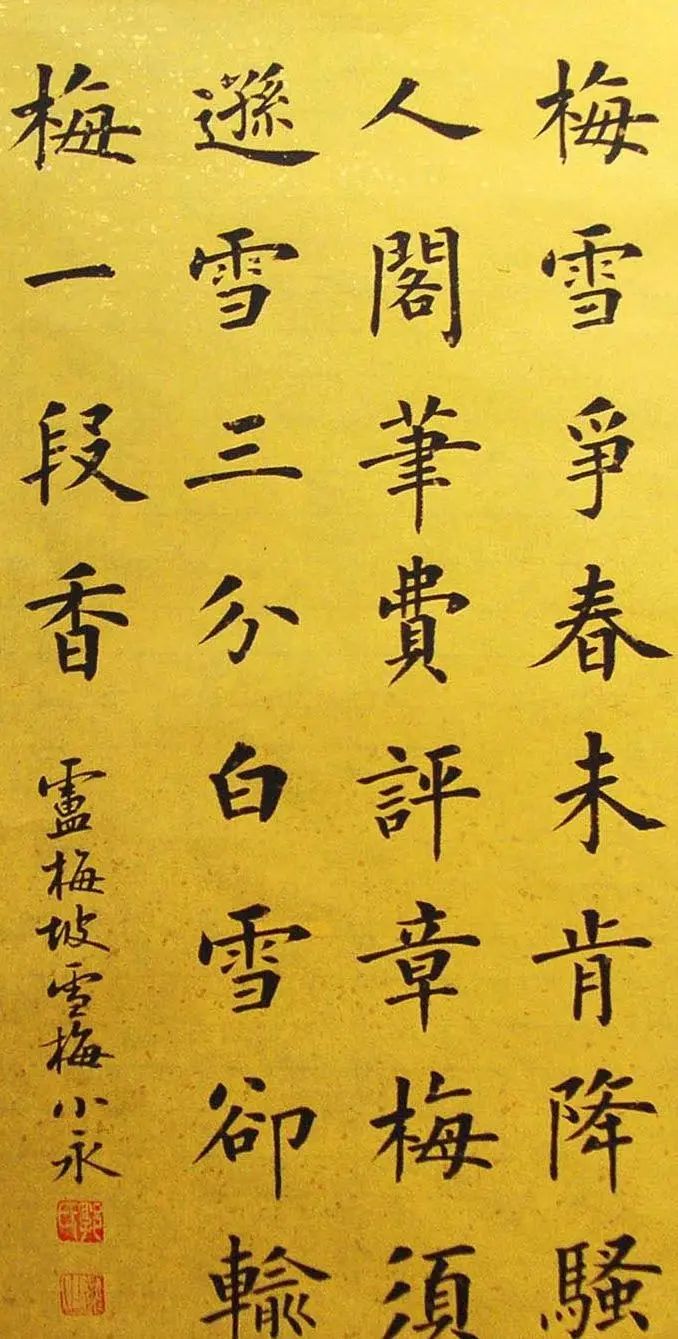 梅雪爭春未肯降騷
人閣筆費評章梅須
遜雪三分白雪卻輸
梅一段香
盧梅坡雪梅小永